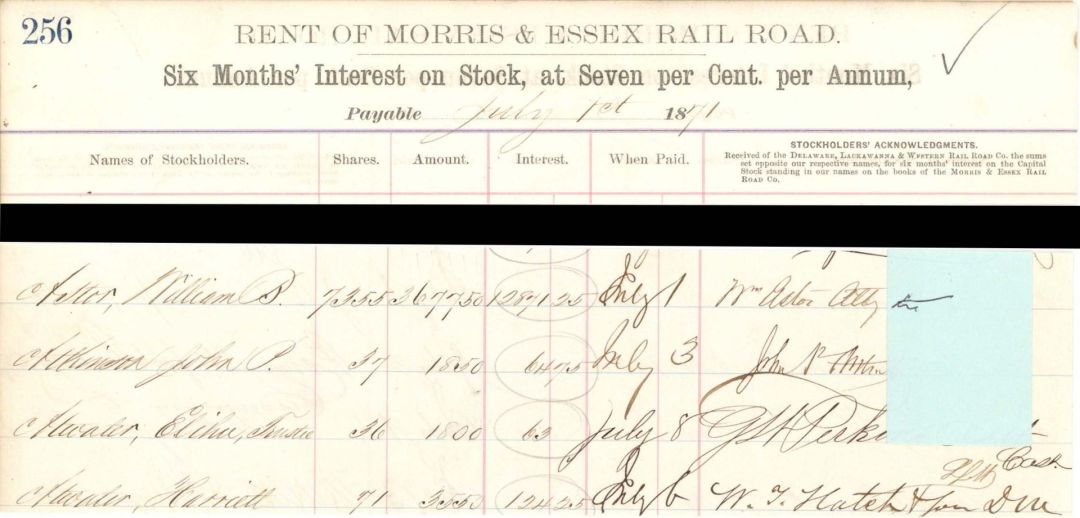 256
RENT OF MORRIS & ESSEX RAIL ROAD.
Six Months' Interest on Stock, at Seven per Cent. per Annum,
Payable July 1st 1871
Names of Stockholders. Shares. Amount. Interest. When Paid. STOCKHOLDERS' ACKNOWLEDGMENTS.
Received of the DELAWARE, LACKAWANNA & WESTERN RAIL ROAD CO. the sums
set opposite our respective names, for six months' interest on the Capital
Stock standing in our names on the books of the MORRIS & ESSEX RAIL
ROAD CO.
Astor, William B. 7355 367750 12871 25 July 1 Wm Astor Atty
Atkinson John P. 37 1850 64 75 July 3 John P Atkin
Atwater, Elihu, Trustee 36 1800 63 July 8 G H Perk
Cash
Atwater, Harriett 71 3550 124 25 July 6 W. T. Hatch & Son